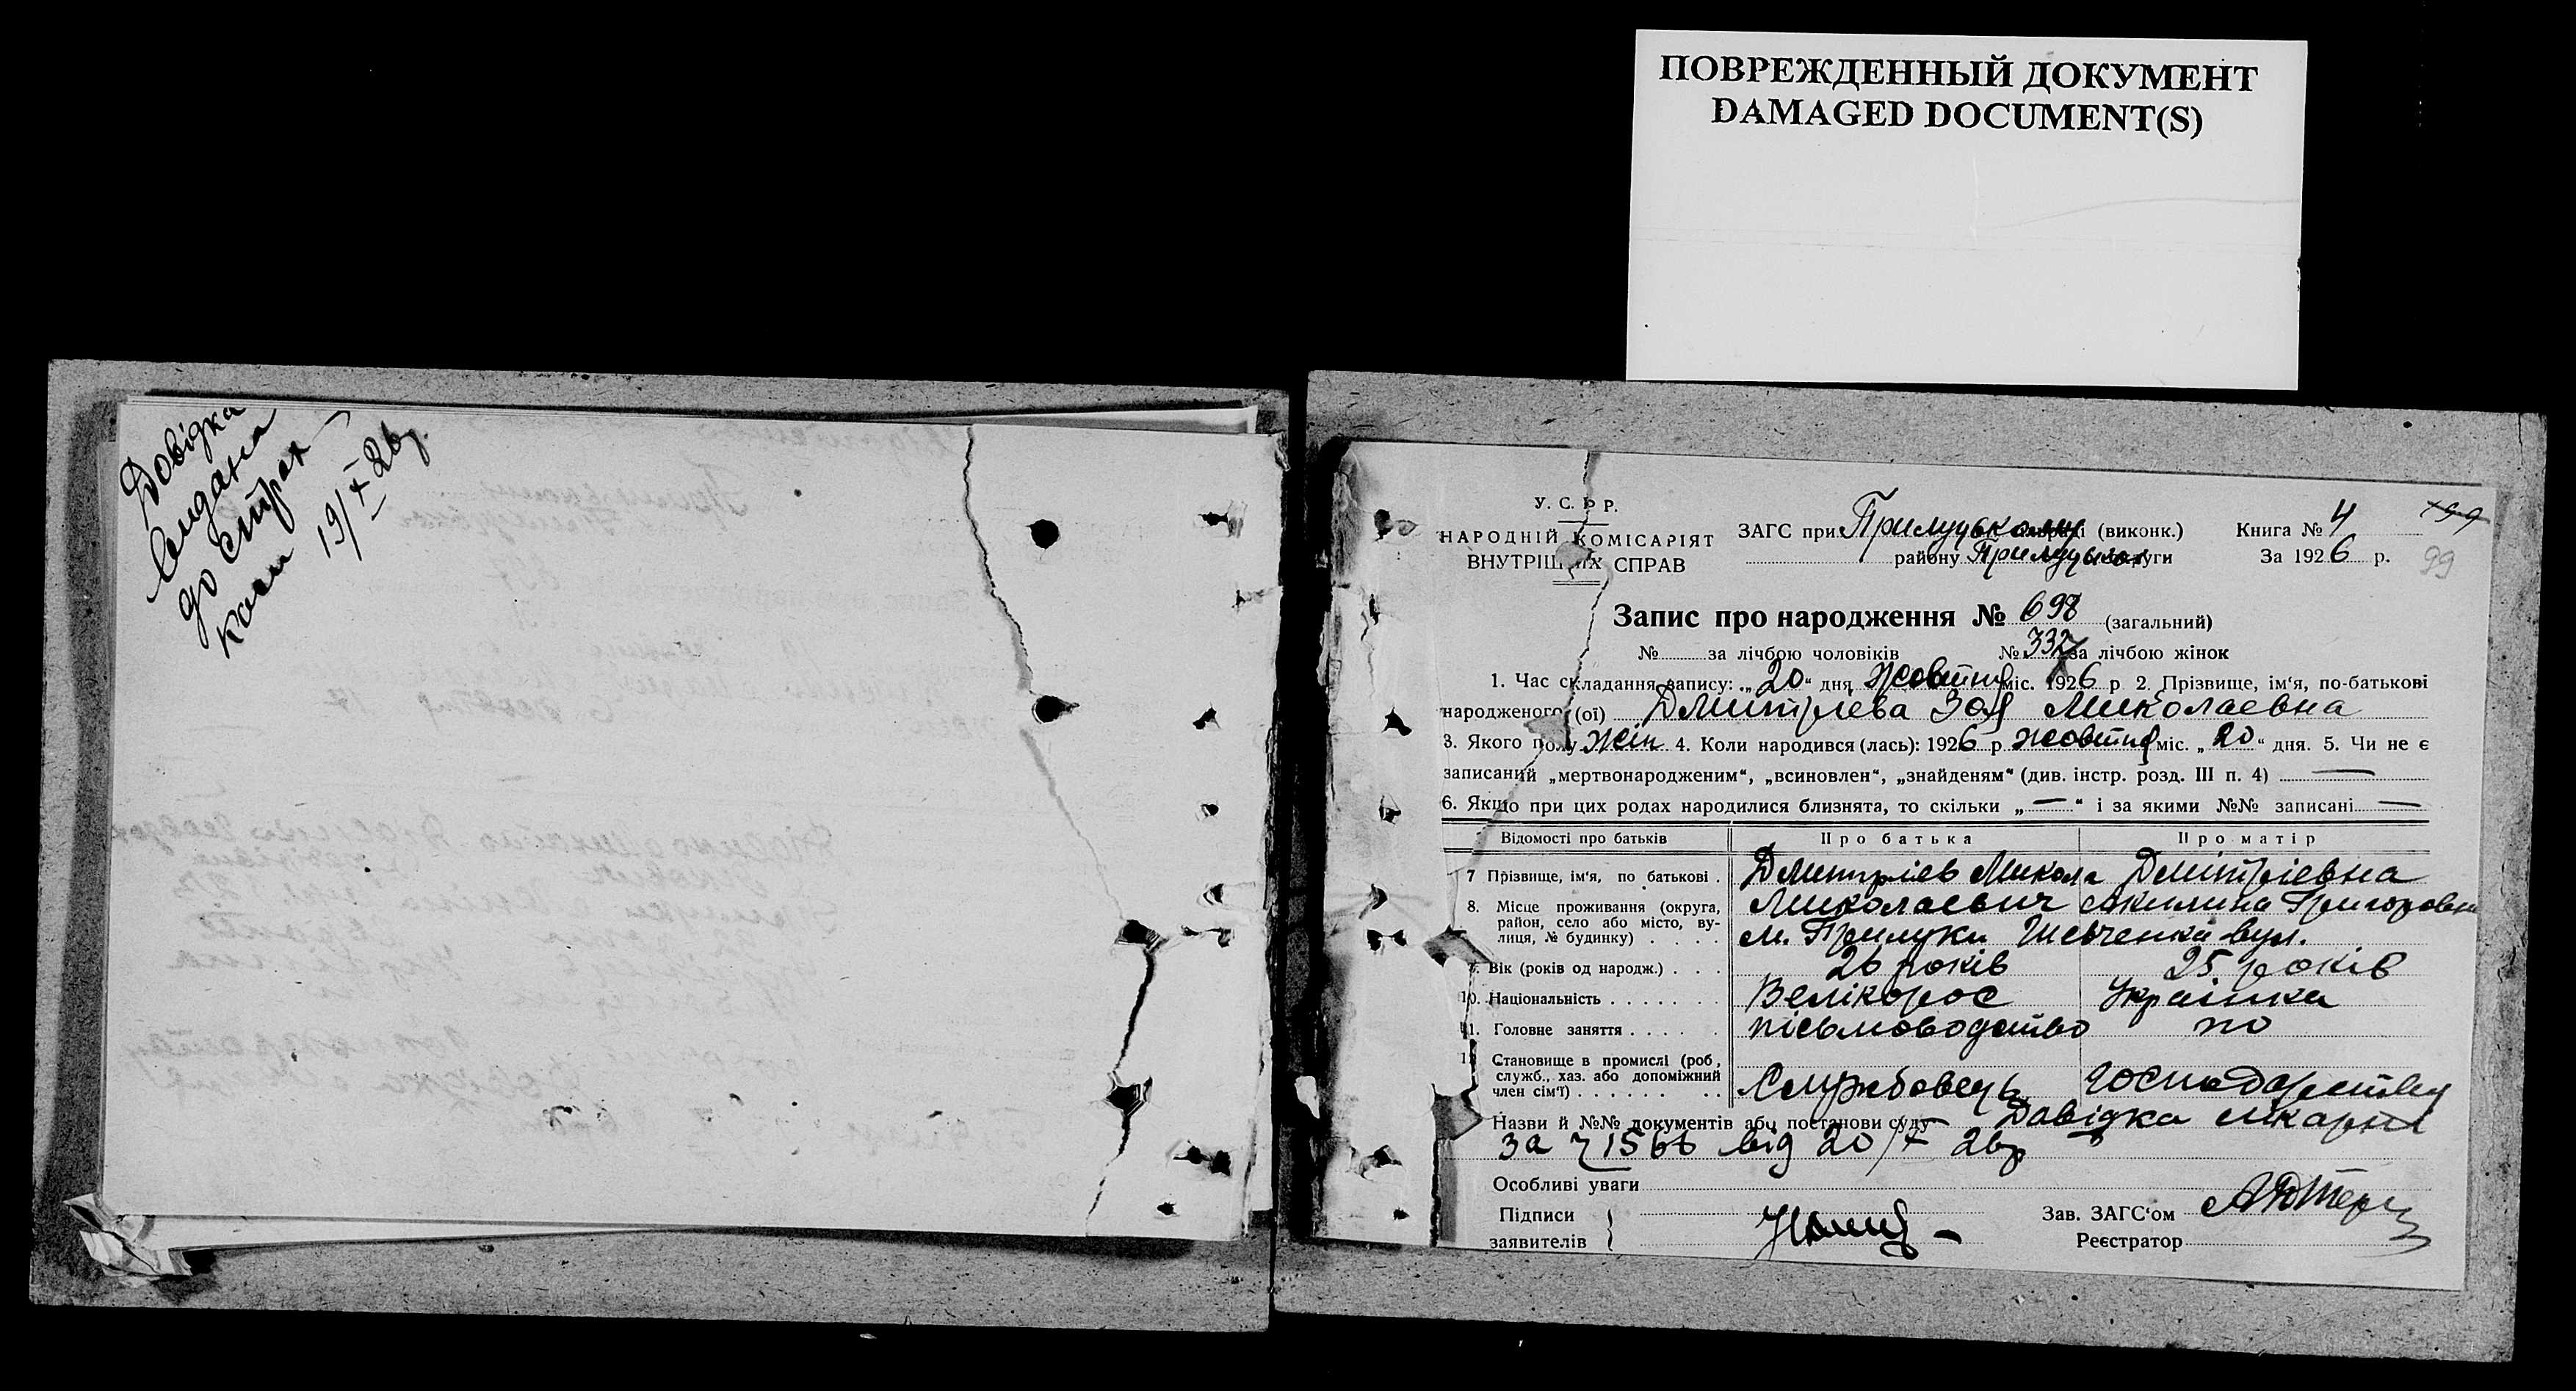 ПОВРЕЖДЕННЫЙ ДОКУМЕНТ
DAMAGED DOCUMENT(S)
Довідка
видана
до страх
каси 19/X 26р.
У. С. Р Р.
НАРОДНІЙ КОМІСАРІЯТ
ВНУТРІШНІХ СПРАВ
ЗАГС при Прилуцькому раді (виконк.)
району Прилуцької округи
Книга № 4
За 1926 р.
199
99
Запис про народження № 698 (загальний)
№ за лічбою чоловіків № 332 за лічбою жінок
1. Час складання запису: „20“ дня Жовтня міс. 1926 р 2. Прізвище, ім'я, по-батькові
народженого (ої) Дмитрієва Зоя Миколаевна
3. Якого полу жін 4. Коли народився (лась): 1926 р. жовтня міс. „20“ дня. 5. Чи не є
записаний „мертвонародженим“, „всиновлен“, „знайденям“ (див. інстр. розд. III п. 4) —
6. Якщо при цих родах народилися близнята, то скільки „—“ і за якими №№ записані —
Відомості про батьків Про батька Про матір
7 Прізвище, ім'я, по батькові . Дмитрієв Микола Дмітрієвна
Миколаєвич Акилина Григоровна
8. Місце проживання (округа,
район, село або місто, ву-
лиця, № будинку) . . . . м. Прилуки Шевченка вул.
9. Вік (років од народж.) . . . 26 років 25 років
10. Національність . . . . . . . Велікорос Українка
11. Головне заняття . . . . . письмоводство по
12. Становище в промислі (роб,
служб., хаз. або допоміжний
член сім'ї) . . . . . . . . Службовець господарству
Назви й №№ документів або постанови суду Довідка лікарні
за № 1566 від 20/X 26р
Особливі уваги
Підписи
заявителів
Зав. ЗАГС'ом
Реєстратор